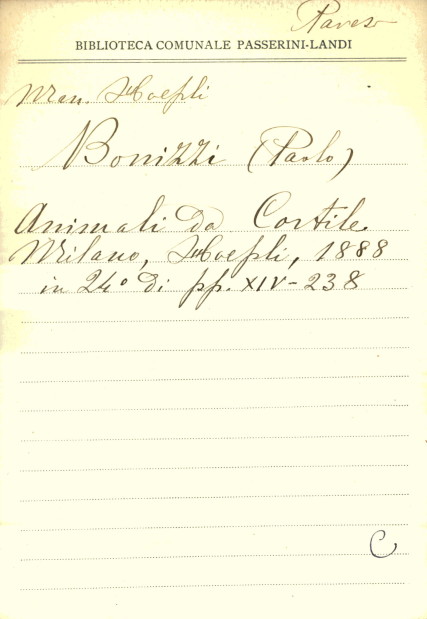 Pavesi
BIBLIOTECA COMUNALE PASSERINI-LANDI
Man. Hoepli
Bonizzi (Paolo)
Animali da Cortile
Milano, Hoepli, 1888
in 24° di pp. XIV-238
C